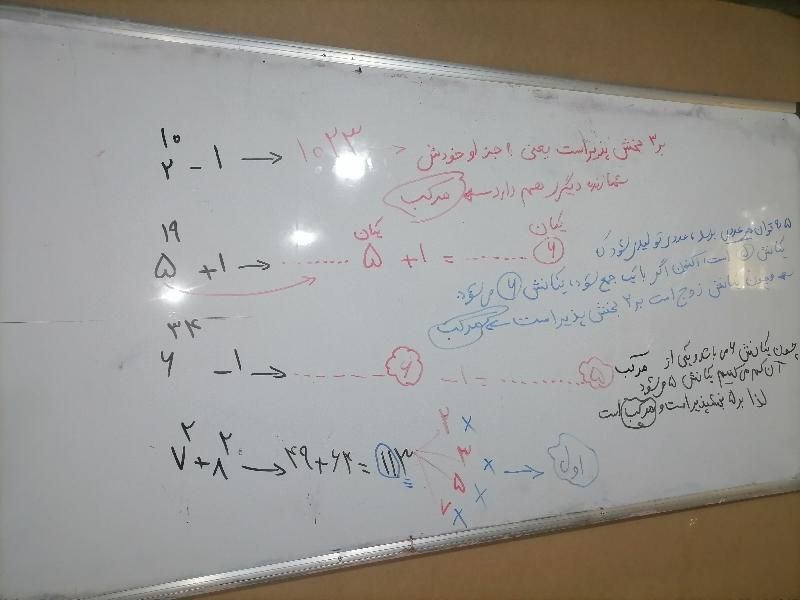 ۲^۱۰ - ۱ → ۱۰۲۳ → بر ۳ بخش پذیر است یعنی بجز ۱ و خودش
شمارنده دیگری هم دارد ← مرکب
۵^۱۹ + ۱ → ........ ۵ + ۱ = ........ ۶
یکان یکان
۵ به توان هر عددی برسد، عددی تولید می‌شود که
یکانش ۵ است، اکنون اگر با یک جمع شود، یکانش ۶ می‌شود.
چون یکانش زوج است بر ۲ بخش پذیر است ← مرکب
۶^۳۴ - ۱ → ........ ۶ - ۱ = ........ ۵ مرکب
چون یکانش ۶ می‌باشد و یکی از
آن کم می‌کنیم یکانش ۵ می‌شود
لذا بر ۵ بخشپذیر است و مرکب است
۷^۲ + ۸^۲ → ۴۹ + ۶۴ = ۱۱۳ → اول
۲ x
۳ x
۵ x
۷ x